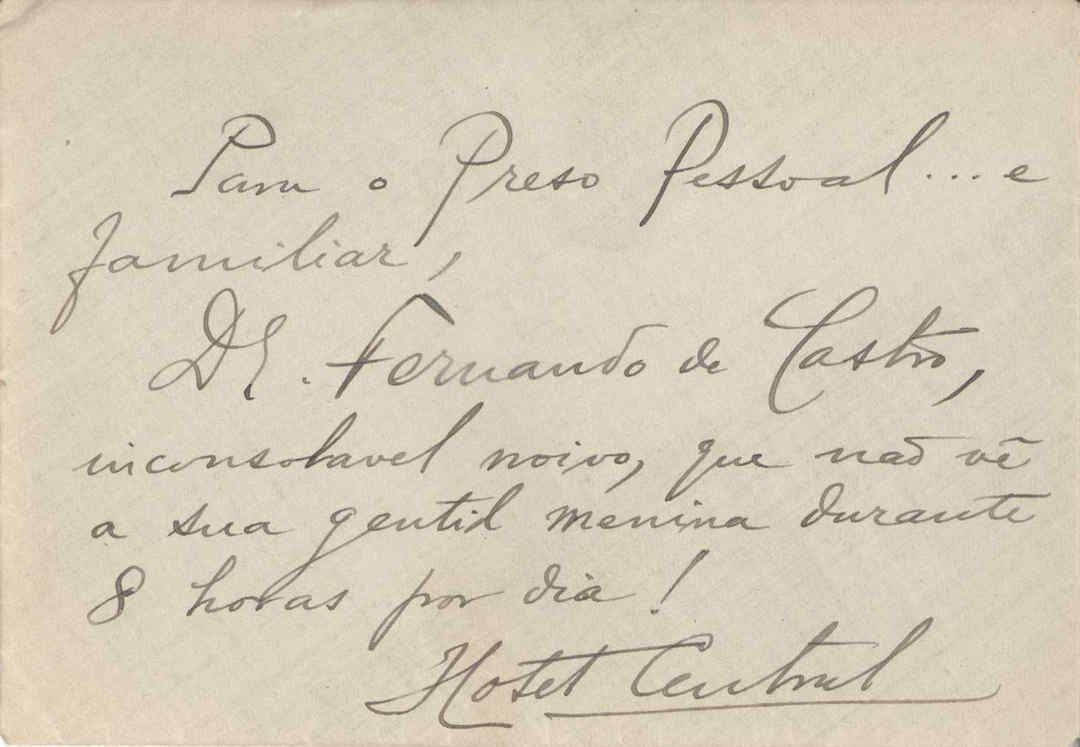 Para o Preso Pessoal... e
familiar,
Dr. Fernando de Castro,
inconsolavel noivo, que não vê
a sua gentil menina durante
8 horas por dia!
Hotel Central